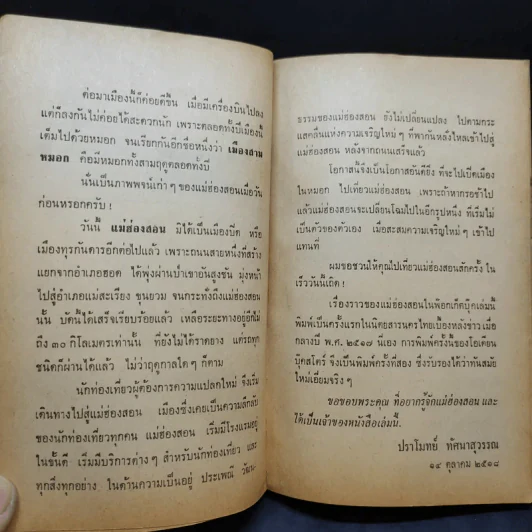 ต่อมาเมืองนี้ก็ค่อยดีขึ้น เมื่อมีเครื่องบินไปลง
แต่ก็ลงกันไม่ค่อยได้สะดวกนัก เพราะตลอดทั้งปีเมืองนี้
เต็มไปด้วยหมอก จนเรียกกันอีกชื่อหนึ่งว่า เมืองสาม
หมอก คือมีหมอกทั้งสามฤดูตลอดทั้งปี
นั่นเป็นภาพพจน์เก่า ๆ ของแม่ฮ่องสอนเมื่อวัน
ก่อนหรอกครับ !
วันนี้ แม่ฮ่องสอน มิได้เป็นเมืองปิด หรือ
เมืองทุรกันดารอีกต่อไปแล้ว เพราะถนนสายหนึ่งที่สร้าง
แยกจากอำเภอฮอด ได้พุ่งผ่านป่าเขาอันสูงชัน มุ่งหน้า
ไปสู่อำเภอแม่สะเรียง ขุนยวม จนกระทั่งถึงแม่ฮ่องสอน
นั้น บัดนี้ได้เสร็จเรียบร้อยแล้ว เหลือระยะทางอยู่อีกไม่
ถึง ๓๐ กิโลเมตรเท่านั้น ที่ยังไม่ได้ราดยาง แต่รถทุก
ชนิดก็ผ่านได้แล้ว ไม่ว่าฤดูกาลใด ๆ ก็ตาม
นักท่องเที่ยวผู้ต้องการความแปลกใหม่ จึงเริ่ม
เดินทางไปสู่แม่ฮ่องสอน เมืองซึ่งเคยเป็นความลึกลับ
ของนักท่องเที่ยวทุกคน แม่ฮ่องสอน เริ่มมีโรงแรมอยู่
ในขั้นดี เริ่มมีบริการต่าง ๆ สำหรับนักท่องเที่ยว และ
ทุกสิ่งทุกอย่าง ในด้านความเป็นอยู่ ประเพณี วัฒน-
ธรรมของแม่ฮ่องสอน ยังไม่เปลี่ยนแปลง ไปตามกระ
แสคลื่นแห่งความเจริญใหม่ ๆ ที่พากันหลั่งไหลเข้าไปสู่
แม่ฮ่องสอน หลังจากถนนเสร็จแล้ว
โอกาสนี้จึงเป็นโอกาสอันดียิ่ง ที่จะไปเปิดเมือง
ในหมอก ไปเที่ยวแม่ฮ่องสอน เพราะถ้าหากรอช้าไป
แล้วแม่ฮ่องสอนจะเปลี่ยนโฉมไปในอีกรูปหนึ่ง ที่เริ่มไม่
เป็นตัวของตัวเอง เมื่อสะสมความเจริญใหม่ ๆ เข้าไป
แทนที่
ผมขอชวนให้คุณไปเที่ยวแม่ฮ่องสอนสักครั้ง ใน
เร็ววันนี้เถิด !
เรื่องราวของแม่ฮ่องสอนในพ็อกเก็ตบุ๊คเล่มนี้
พิมพ์เป็นครั้งแรกในนิตยสารนครไทยเบื้องหลังข่าว เมื่อ
กลางปี พ.ศ. ๒๕๑๗ นี่เอง การพิมพ์ครั้งนี้ของโอเดียน
บุ๊คสโตร์ จึงเป็นพิมพ์ครั้งที่สอง ซึ่งรับรองได้ว่าทันสมัย
ใหม่เอี่ยมจริง ๆ
ขอขอบพระคุณ ที่อยากรู้จักแม่ฮ่องสอน และ
ได้เป็นเจ้าของหนังสือเล่มนี้.
ปราโมทย์ ทัศนาสุวรรณ
๑๔ ตุลาคม ๒๕๑๘